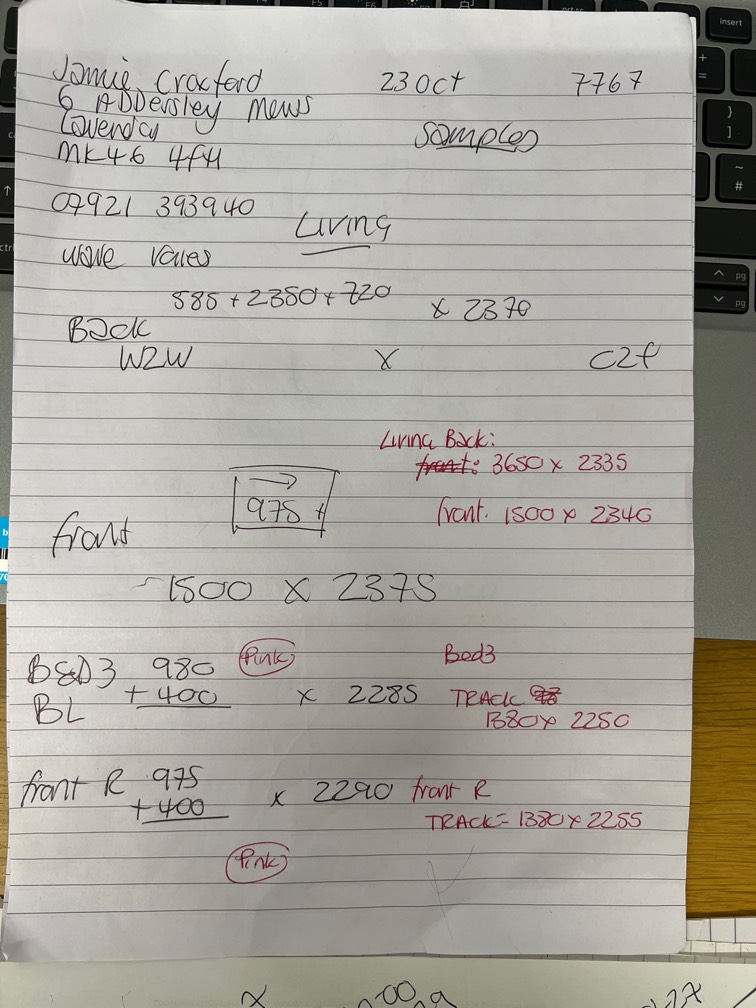 Jamie Croxford 23 Oct 7767
6 ADDersley mews
Lavendon
MK46 4FH
Samples
07921 393940
Living
wave
585 + 2350 + 720 x 2370
Back
W2W x C2f
Living Back:
front: 3650 x 2335
975 +
front. 1500 x 2340
front
~1500 x 2375
BED3 980 Pink Bed3
BL + 400 x 2285 TRACK 98
1380 x 2250
front R 975 x 2290 front R
+ 400 TRACK = 1380 x 2255
Pink